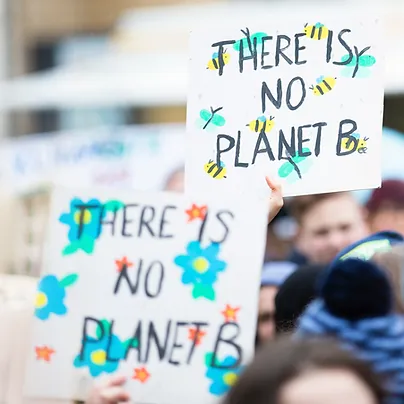 THERE IS
NO
PLANET Bee
THERE IS
NO
PLANET B